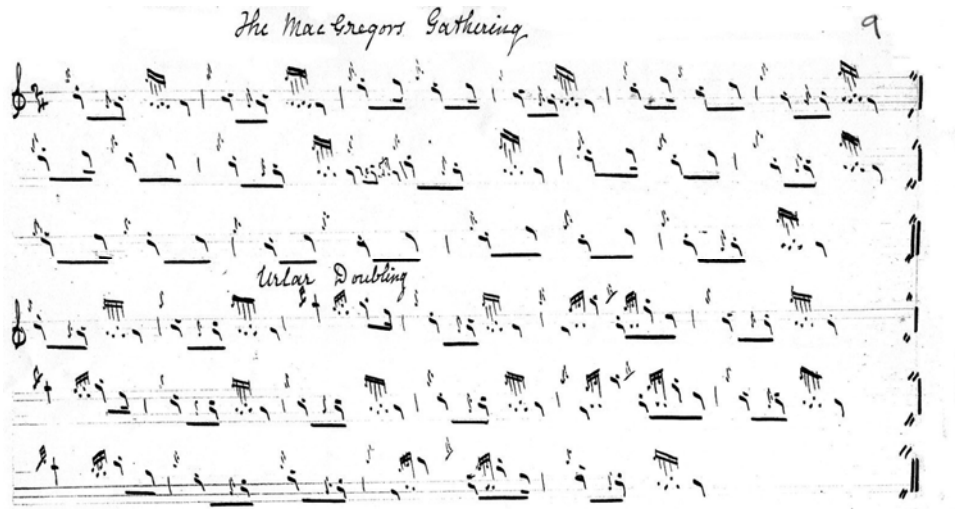 The MacGregors Gathering
9
2/4
Urlar Doubling